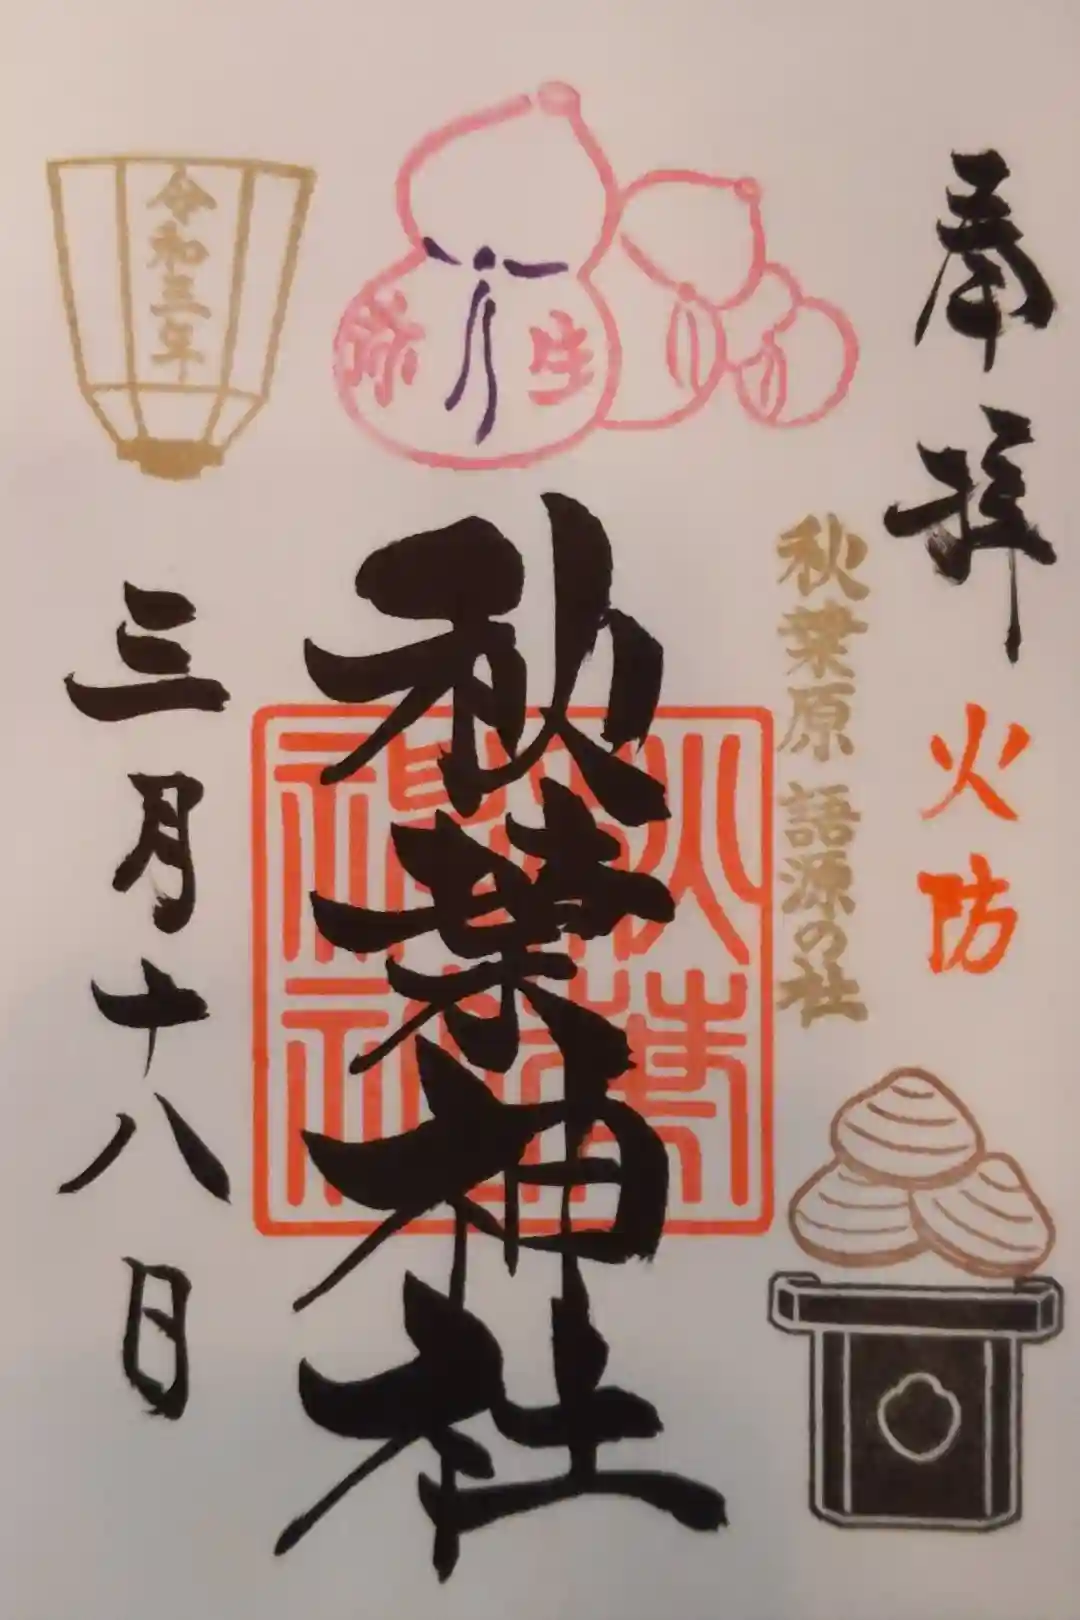 奉拝
火防
秋葉原 語源の社
弥生
秋葉神社
秋葉神社
令和三年
三月十八日